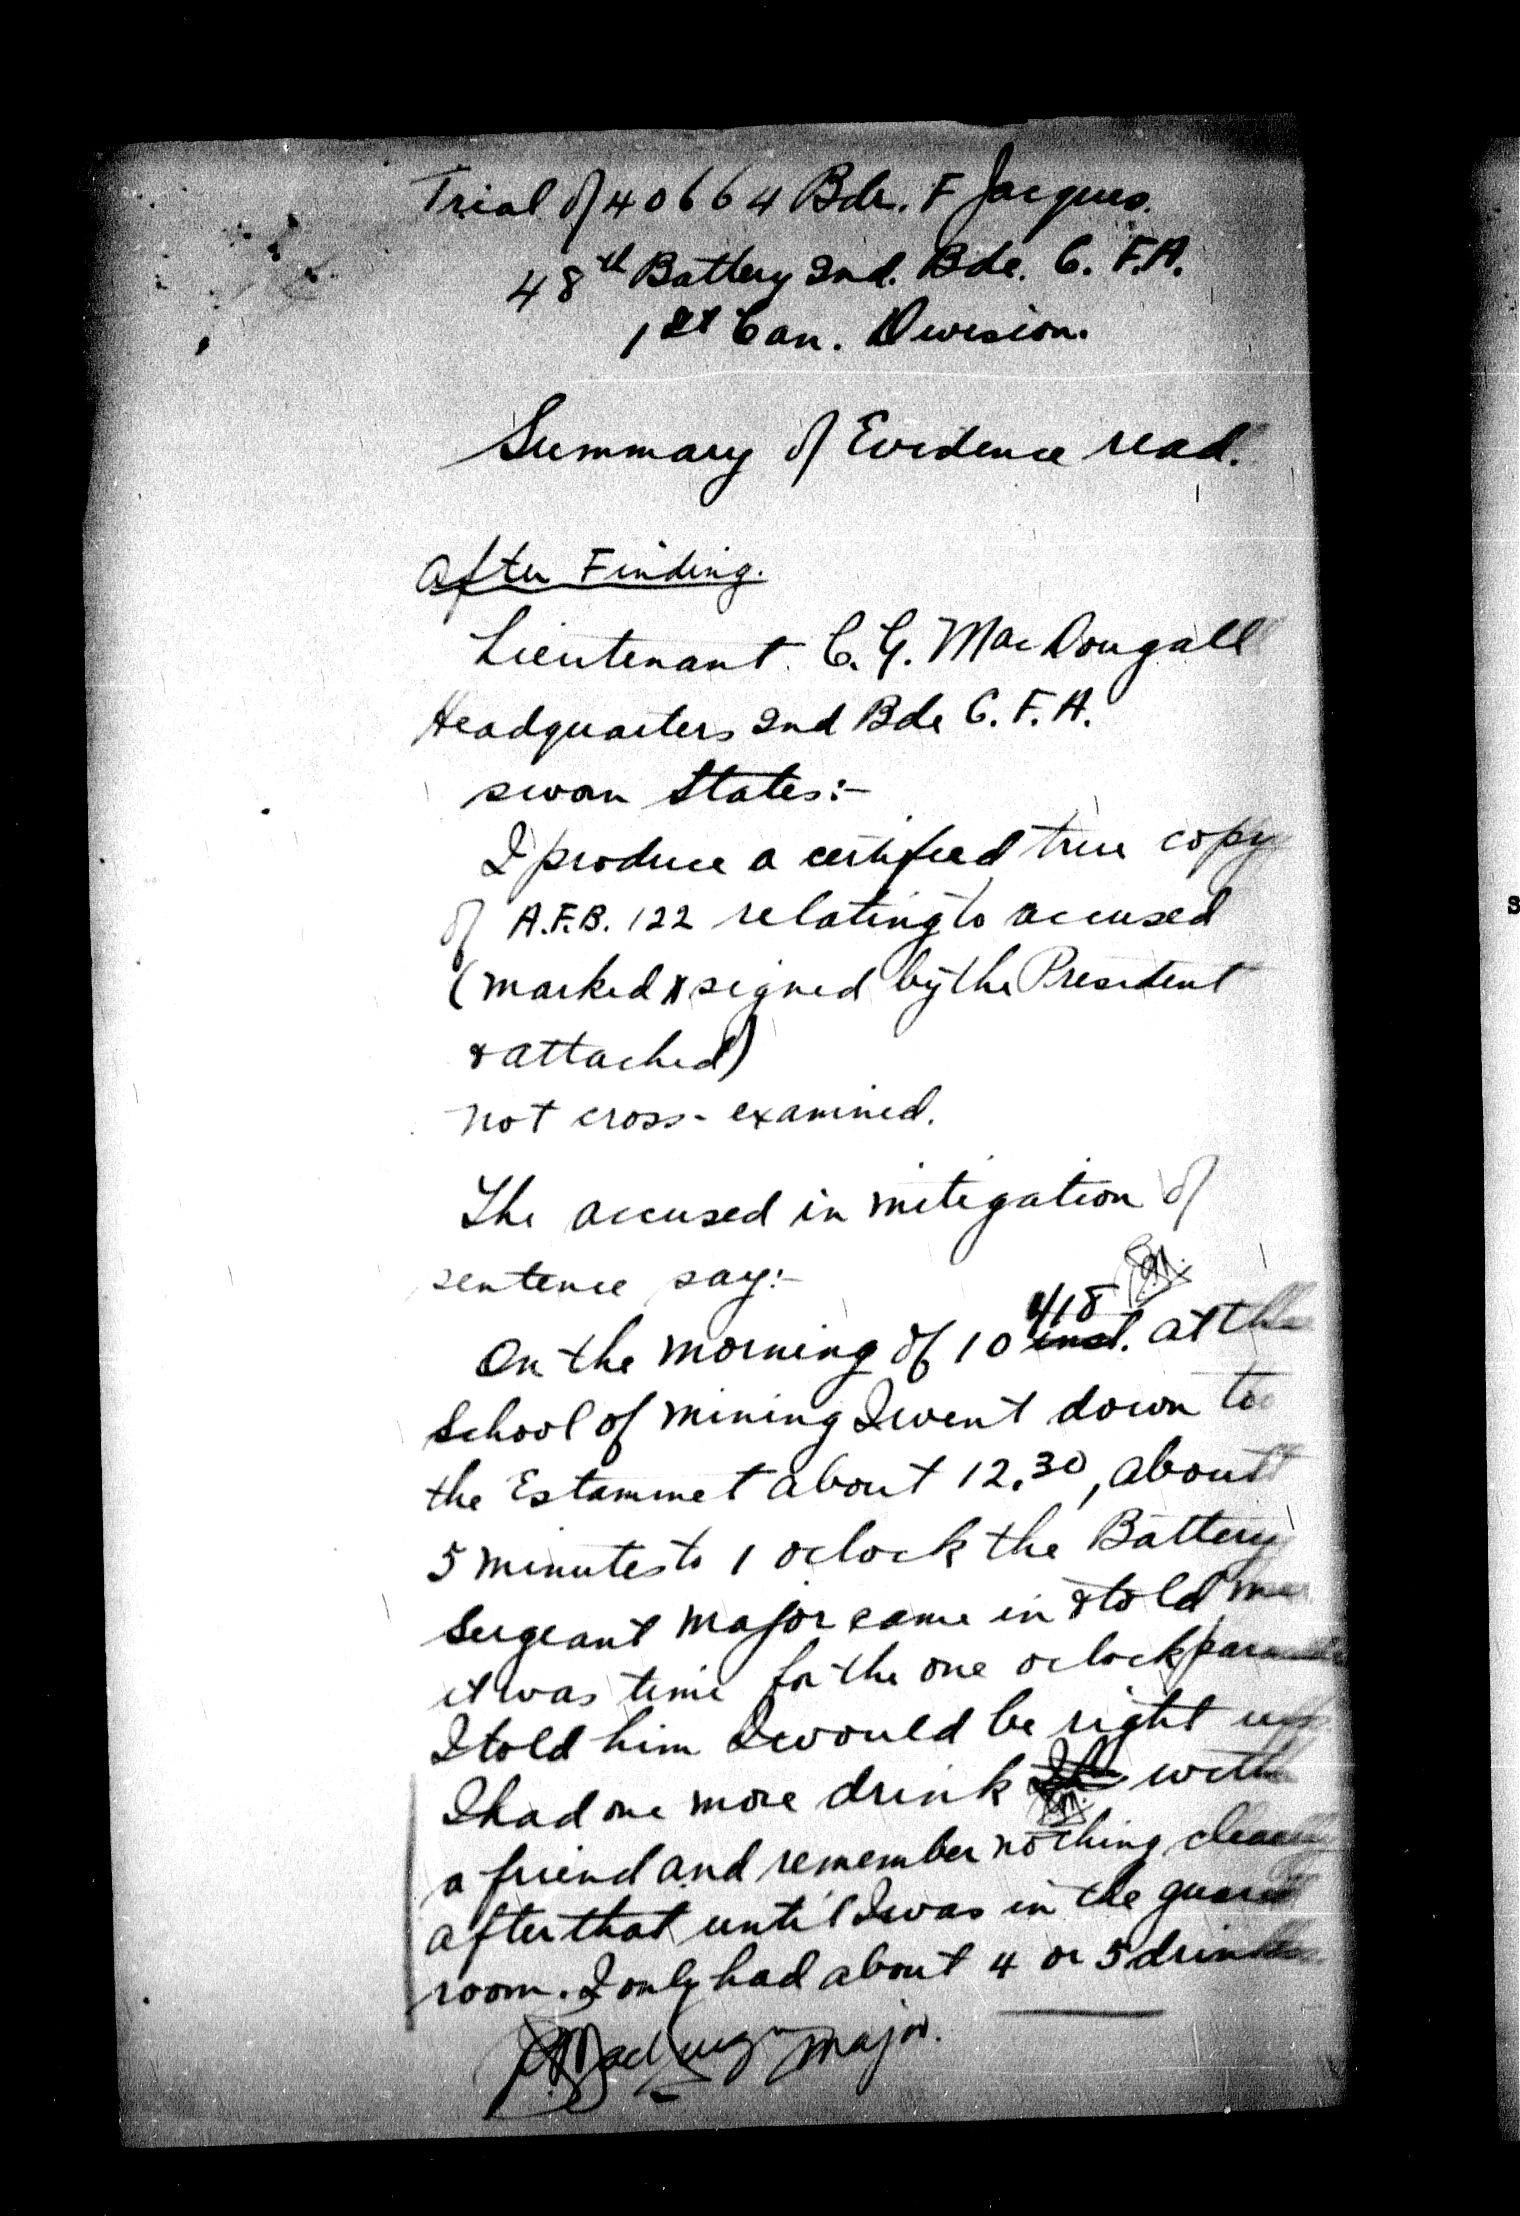 Trial of 40664 Bdr. F Jacques.
48th Battery 2nd. Bde. C. F.A.
1st Can. Division.
Summary of Evidence read.
After Finding.
Lieutenant. C. G. MacDougall
Headquarters 2nd Bde C. F. A.
sworn States:-
I produce a certified true copy
of A.F.B. 122 relating to accused
(marked X signed by the President
& attached)
not cross-examined.
The accused in mitigation of
sentence say:-
4/18
On the morning of 10 inst. at the
School of mining I went down to
the Estammet about 12.30, about
5 minutes to 1 oclock the Battery
Sergeant Major came in & told me
it was time for the one oclock parade
I told him I would be right up
I had one more drink with
a friend and remember nothing clearly
after that until I was in the guard
room. I only had about 4 or 5 drinks.
Major.